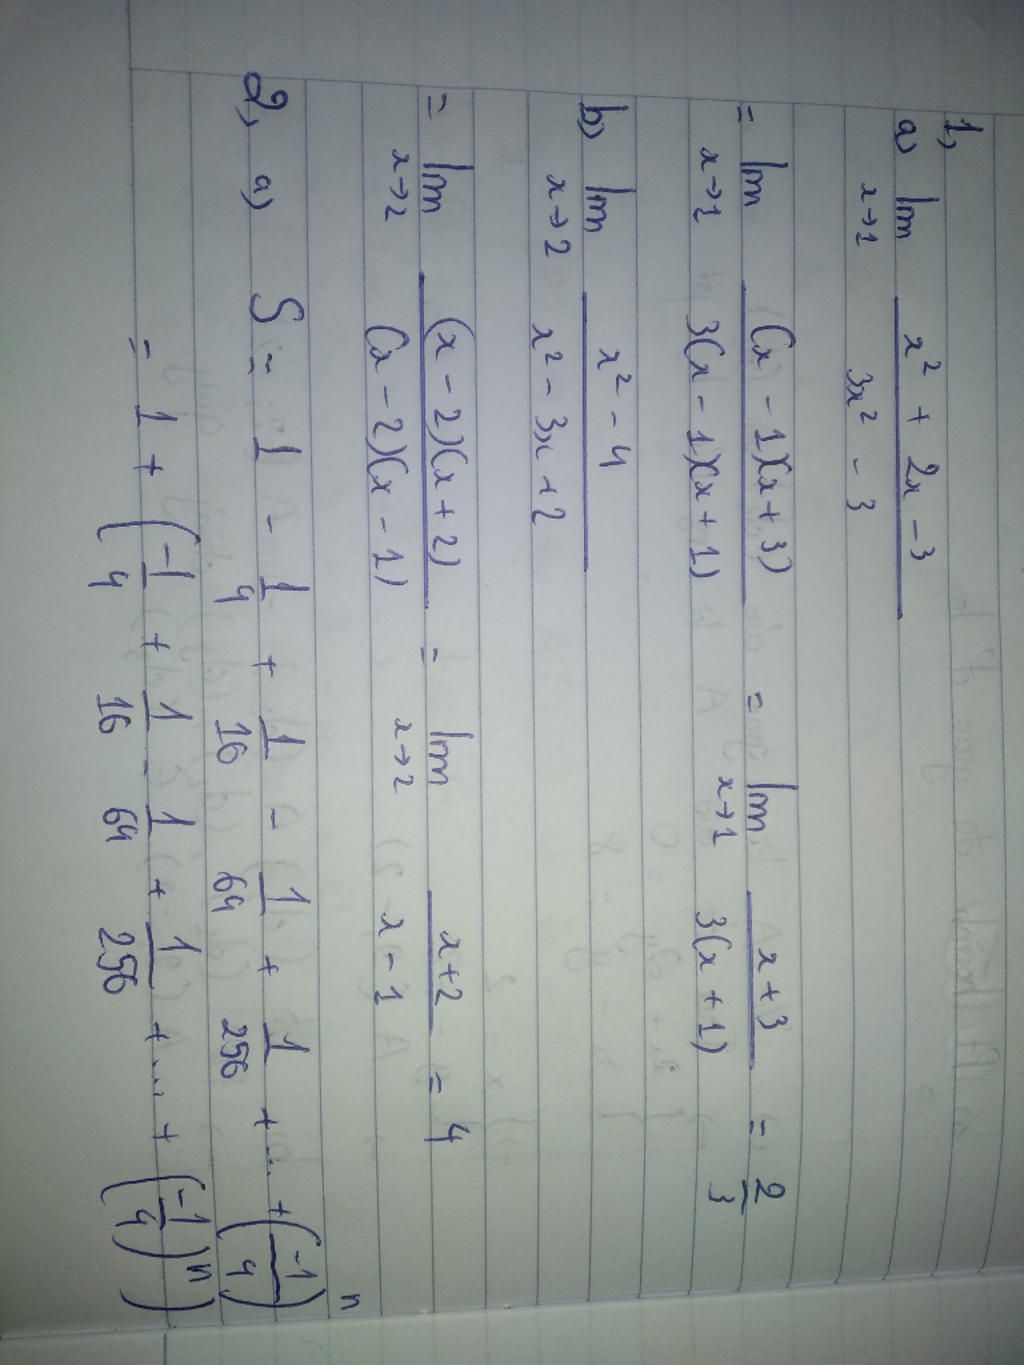 1,
a) lim x→1 (x² + 2x - 3)/(3x² - 3)
= lim x→1 ((x - 1)(x + 3))/(3(x - 1)(x + 1)) = lim x→1 (x + 3)/(3(x + 1)) = 2/3
b) lim x→2 (x² - 4)/(x² - 3x + 2)
= lim x→2 ((x - 2)(x + 2))/((x - 2)(x - 1)) = lim x→2 (x + 2)/(x - 1) = 4
2, a) S = 1 - 1/4 + 1/16 - 1/64 + 1/256 + ... + (-1/4)ⁿ
= 1 + (-1/4 + 1/16 - 1/64 + 1/256 + ... + (-1/4)ⁿ)